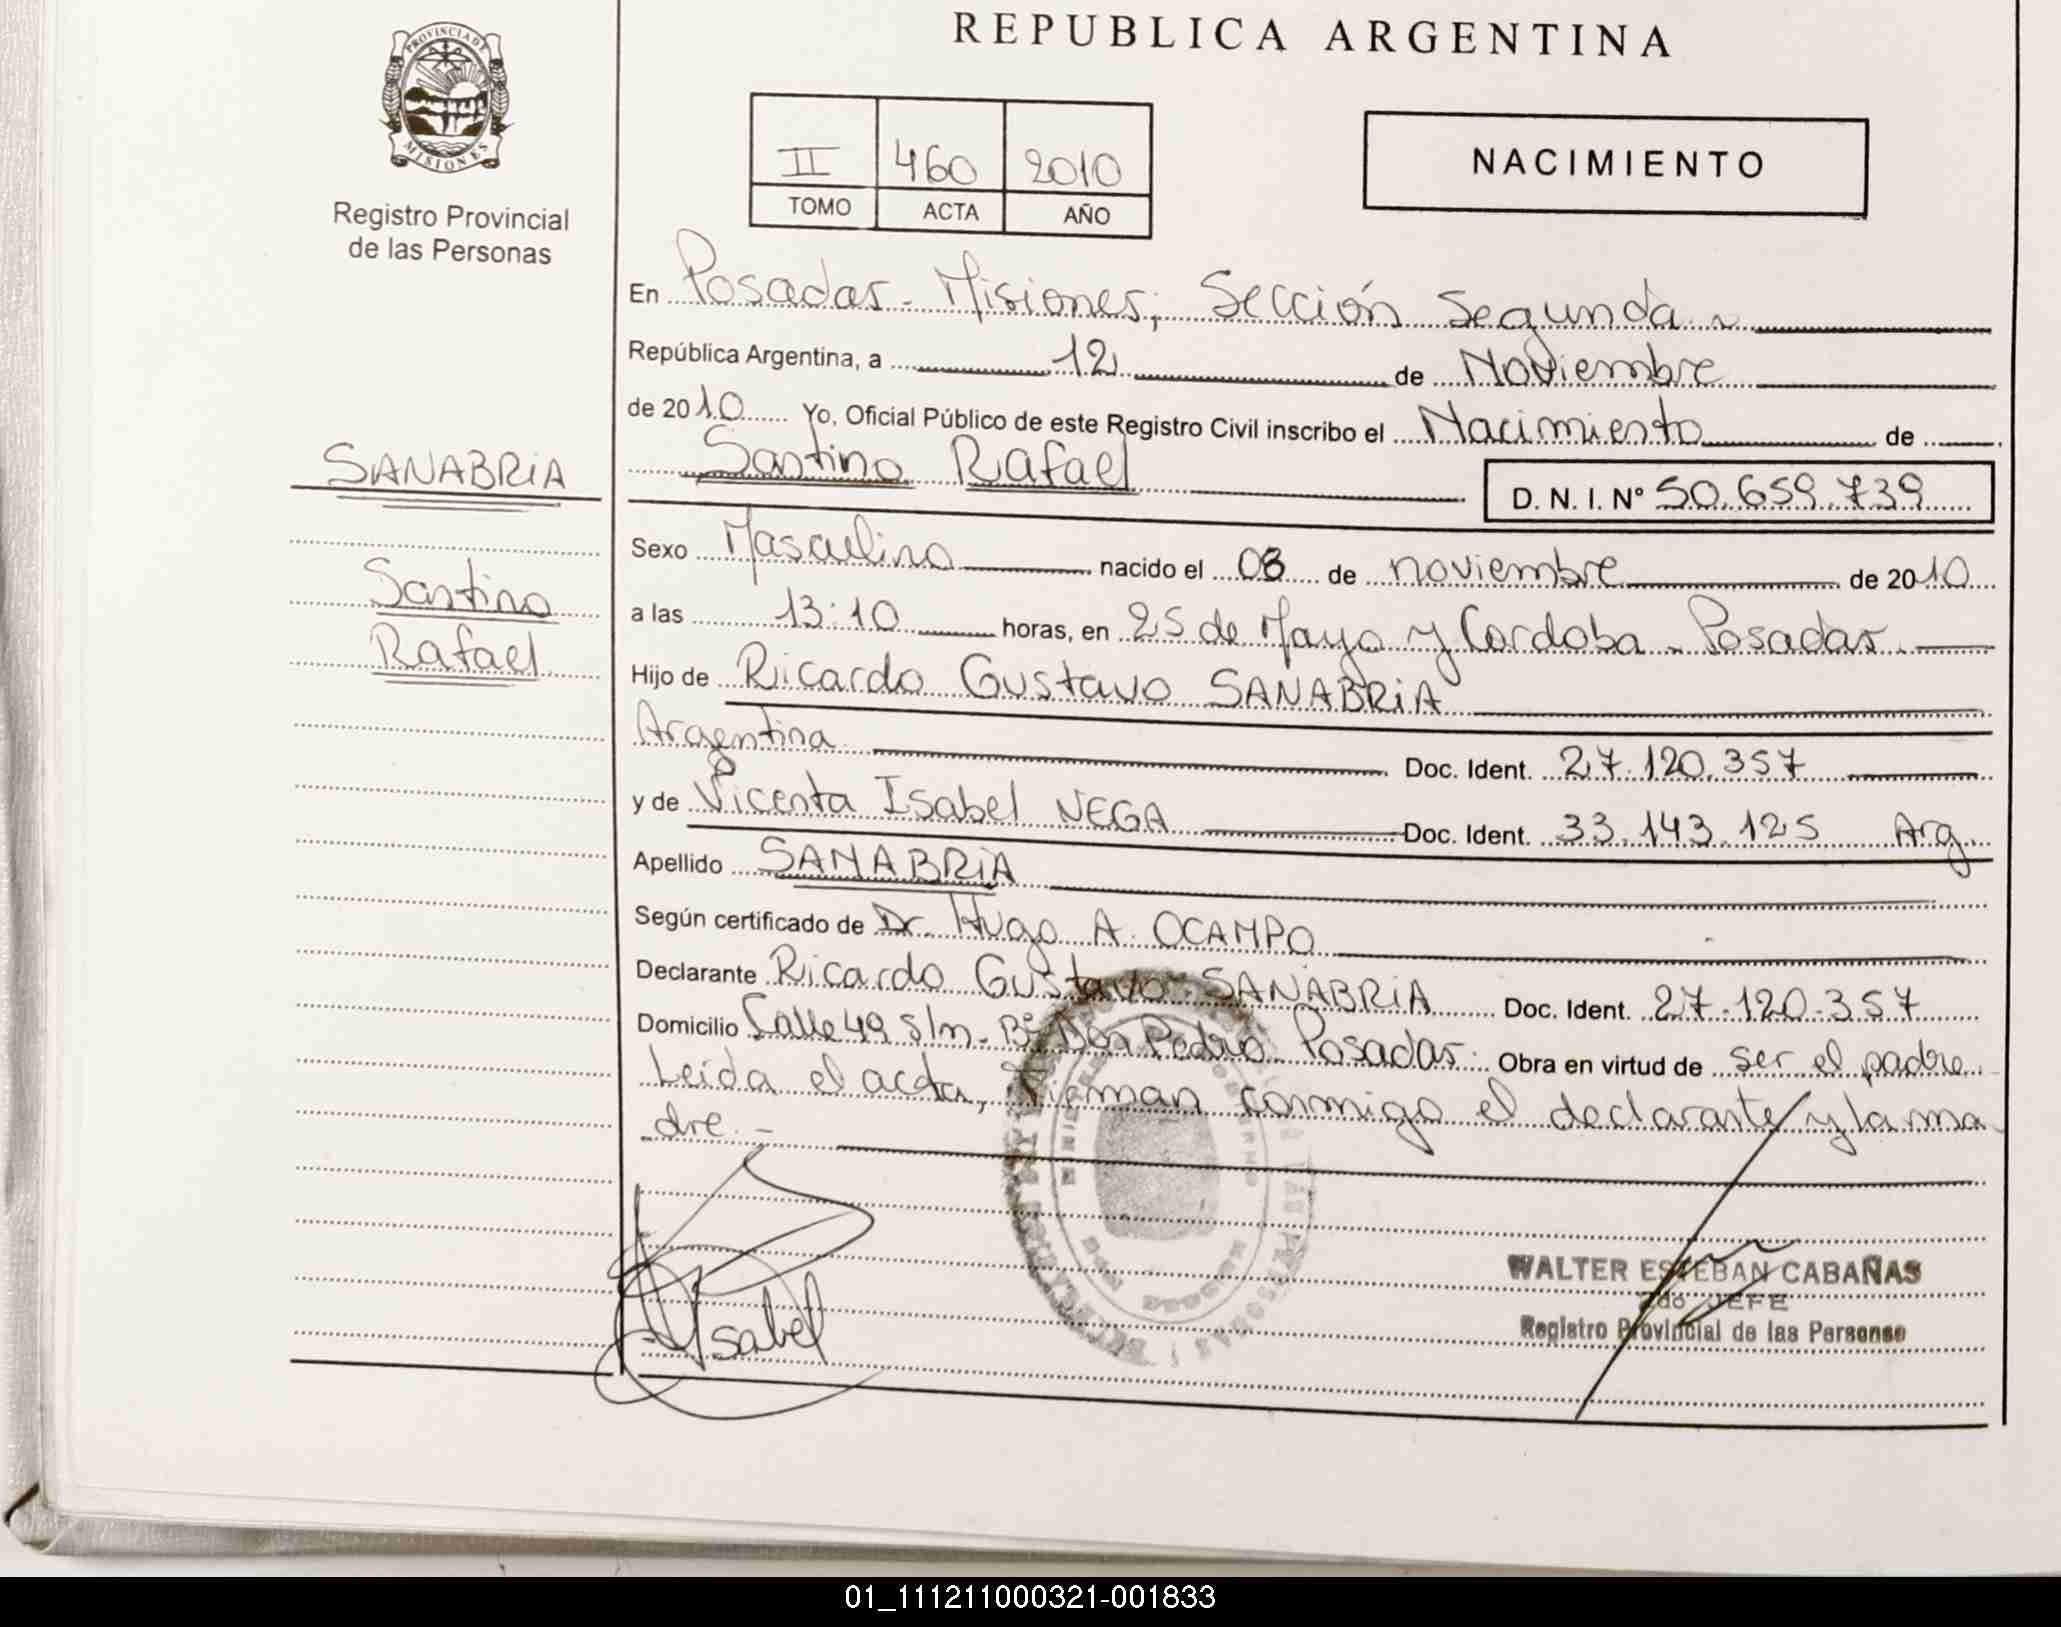 REPUBLICA ARGENTINA
PROVINCIA DE
MISIONES
Registro Provincial
de las Personas
II 460 2010
TOMO ACTA AÑO
NACIMIENTO
En Posadas - Misiones, Sección Segunda
República Argentina, a 12 de Noviembre
de 2010 Yo, Oficial Público de este Registro Civil inscribo el Nacimiento de
Santino Rafael
D. N. I. N° 50.659.739
SANABRIA
Santino
Rafael
Sexo Masculino nacido el 08 de noviembre de 2010
a las 13:10 horas, en 25 de Mayo y Cordoba - Posadas
Hijo de Ricardo Gustavo SANABRIA
Argentina Doc. Ident. 27.120.357
y de Vicenta Isabel NEGA Doc. Ident. 33.143.125 Arg.
Apellido SANABRIA
Según certificado de Dr. Hugo A. OCAMPO
Declarante Ricardo Gustavo SANABRIA Doc. Ident. 27.120.357
Domicilio Calle 49 s/n - B° Don Pedro Posadas Obra en virtud de ser el padre
Leida el acta, firman conmigo el declarante y la ma
dre.-
Isabel
WALTER ESTEBAN CABAÑAS
2do JEFE
Registro Provincial de las Personas
01_111211000321-001833